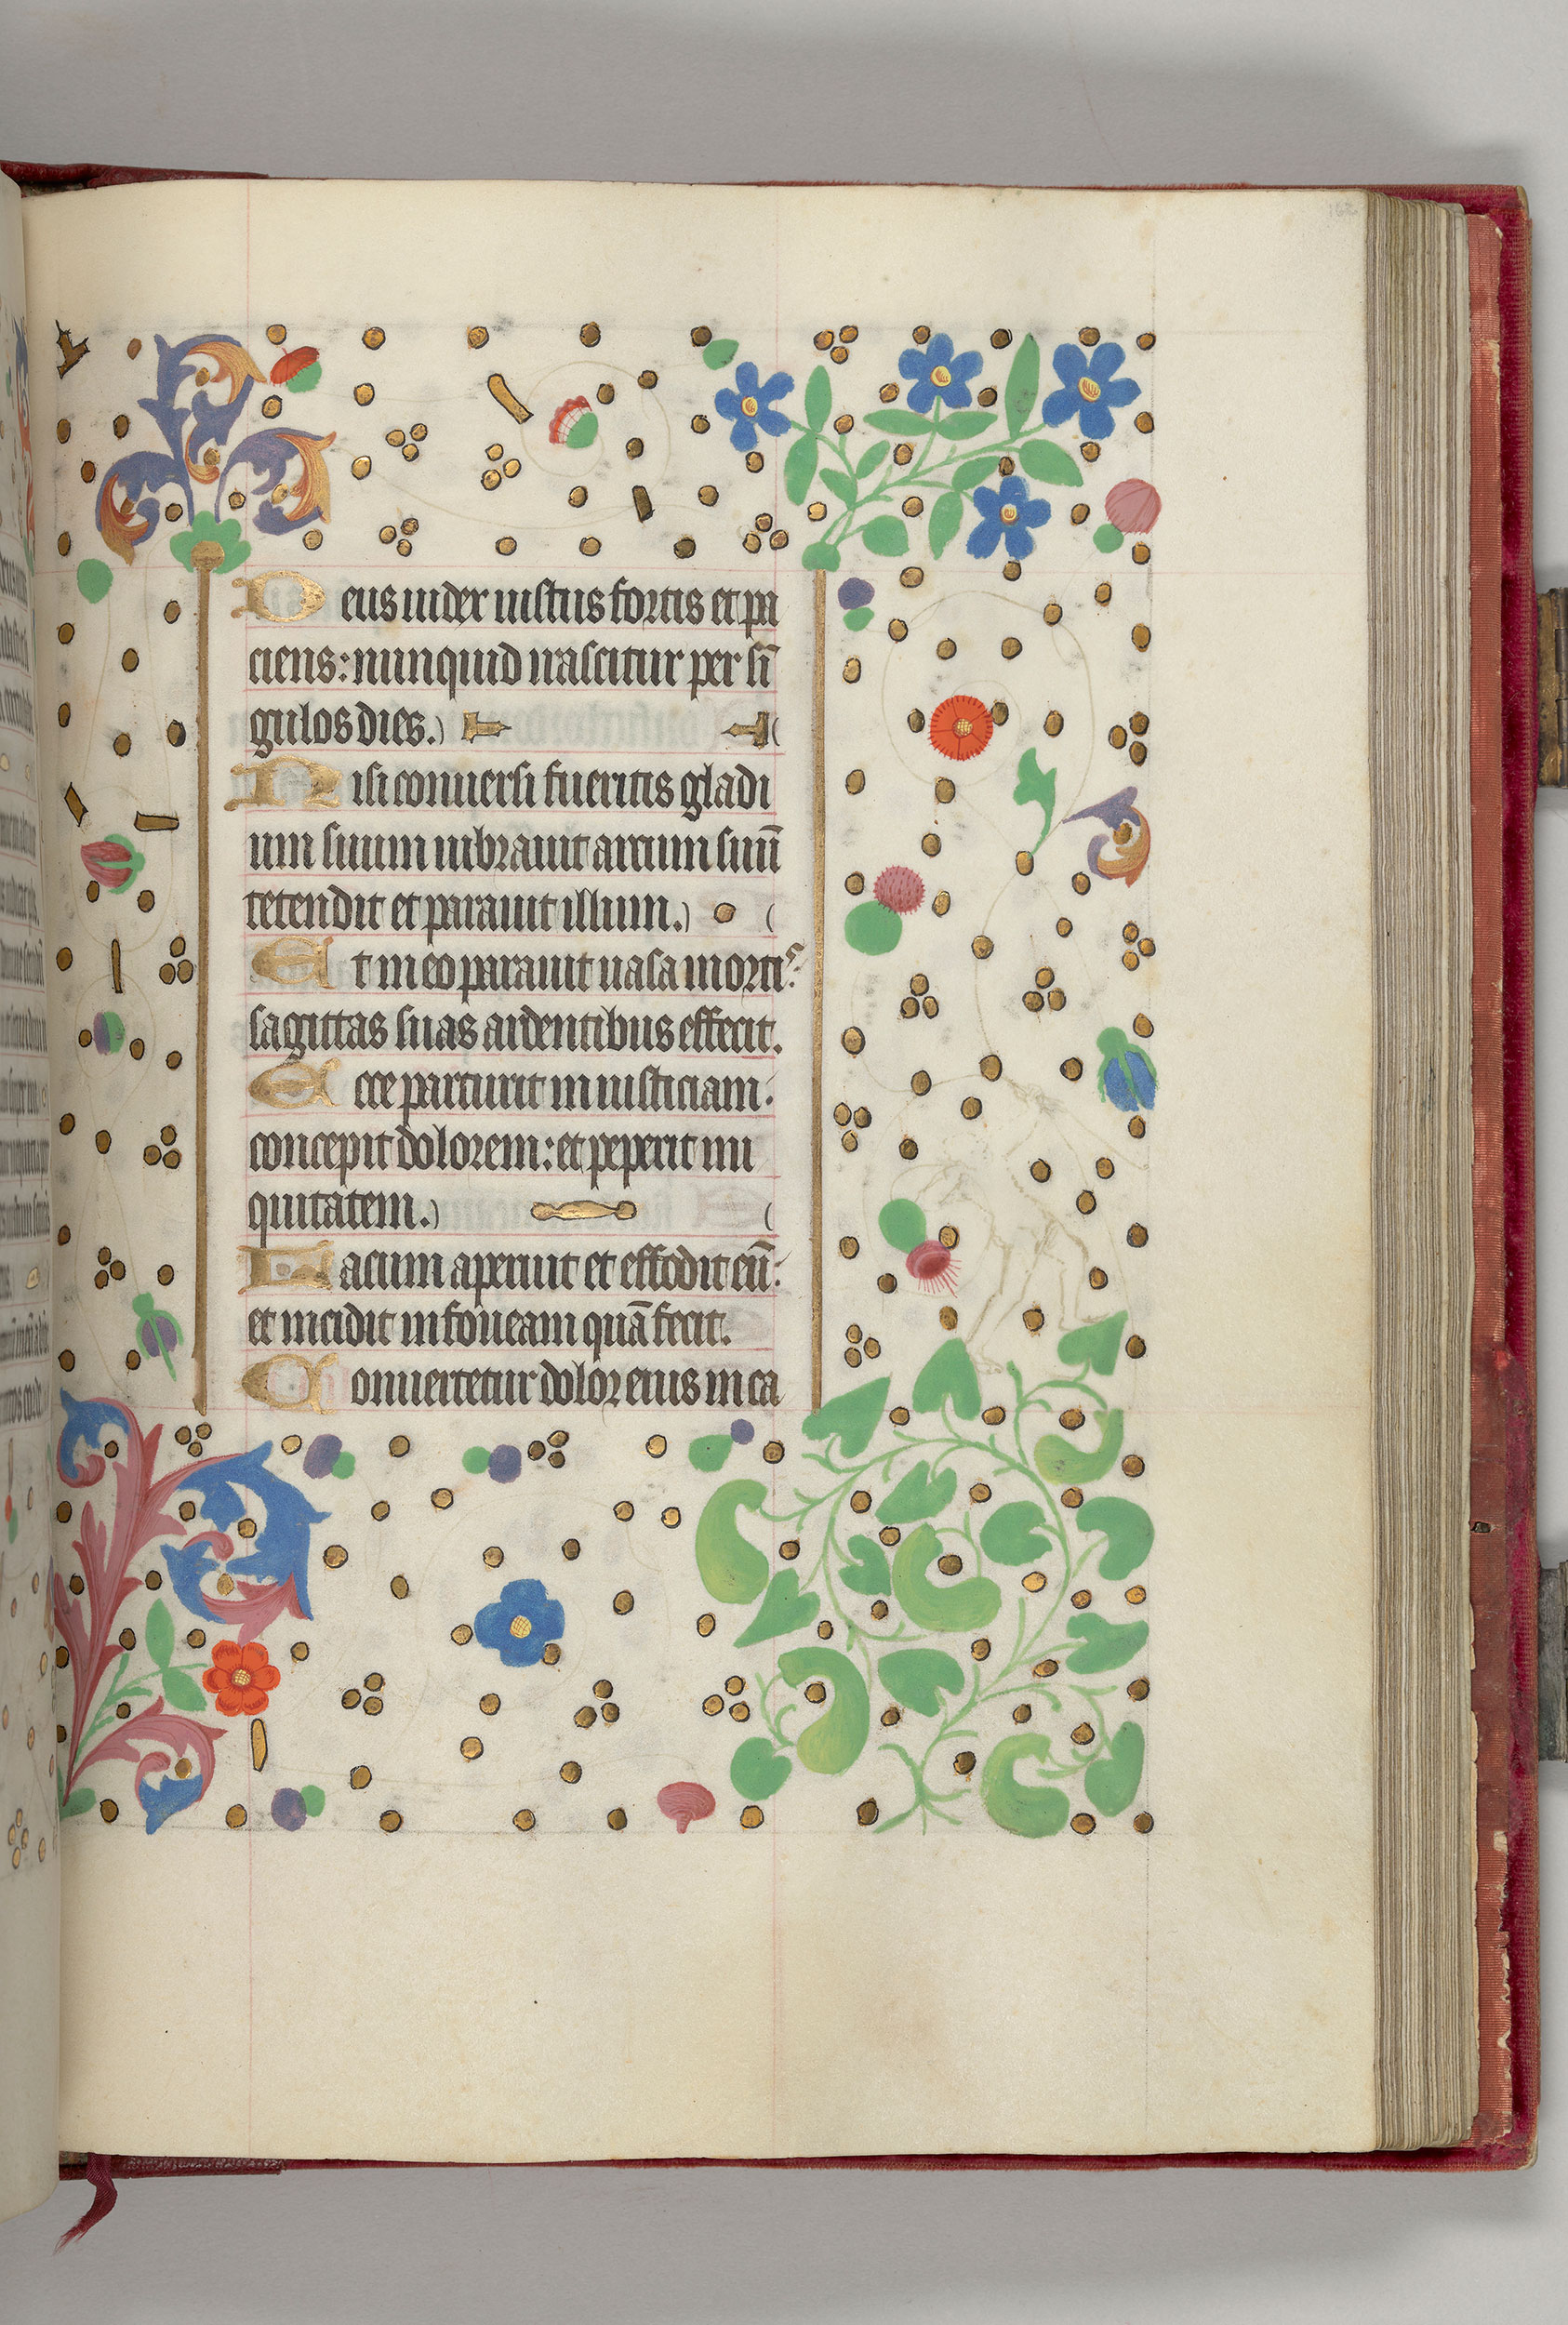 Deus iudex iustus fortis et pa
ciens: nunquid irascitur per si̅
gulos dies.
Nisi conuersi fueritis gladi
um suum uibrauit arcum suu̅
tetendit et parauit illum.
Et in eo parauit uasa mortis:
sagittas suas ardentibus effecit.
Ecce parturit iniusticiam:
concepit dolorem: et peperit ini
quitatem.
Lacum aperuit et effodit eu̅:
et incidit in foueam qua̅ fecit.
Conuertetur dolor eius in ca